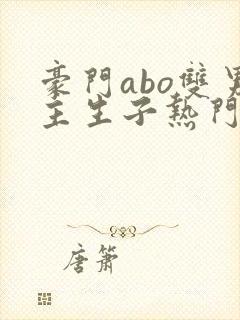 豪門abo雙男
主生子熱門
唐簫